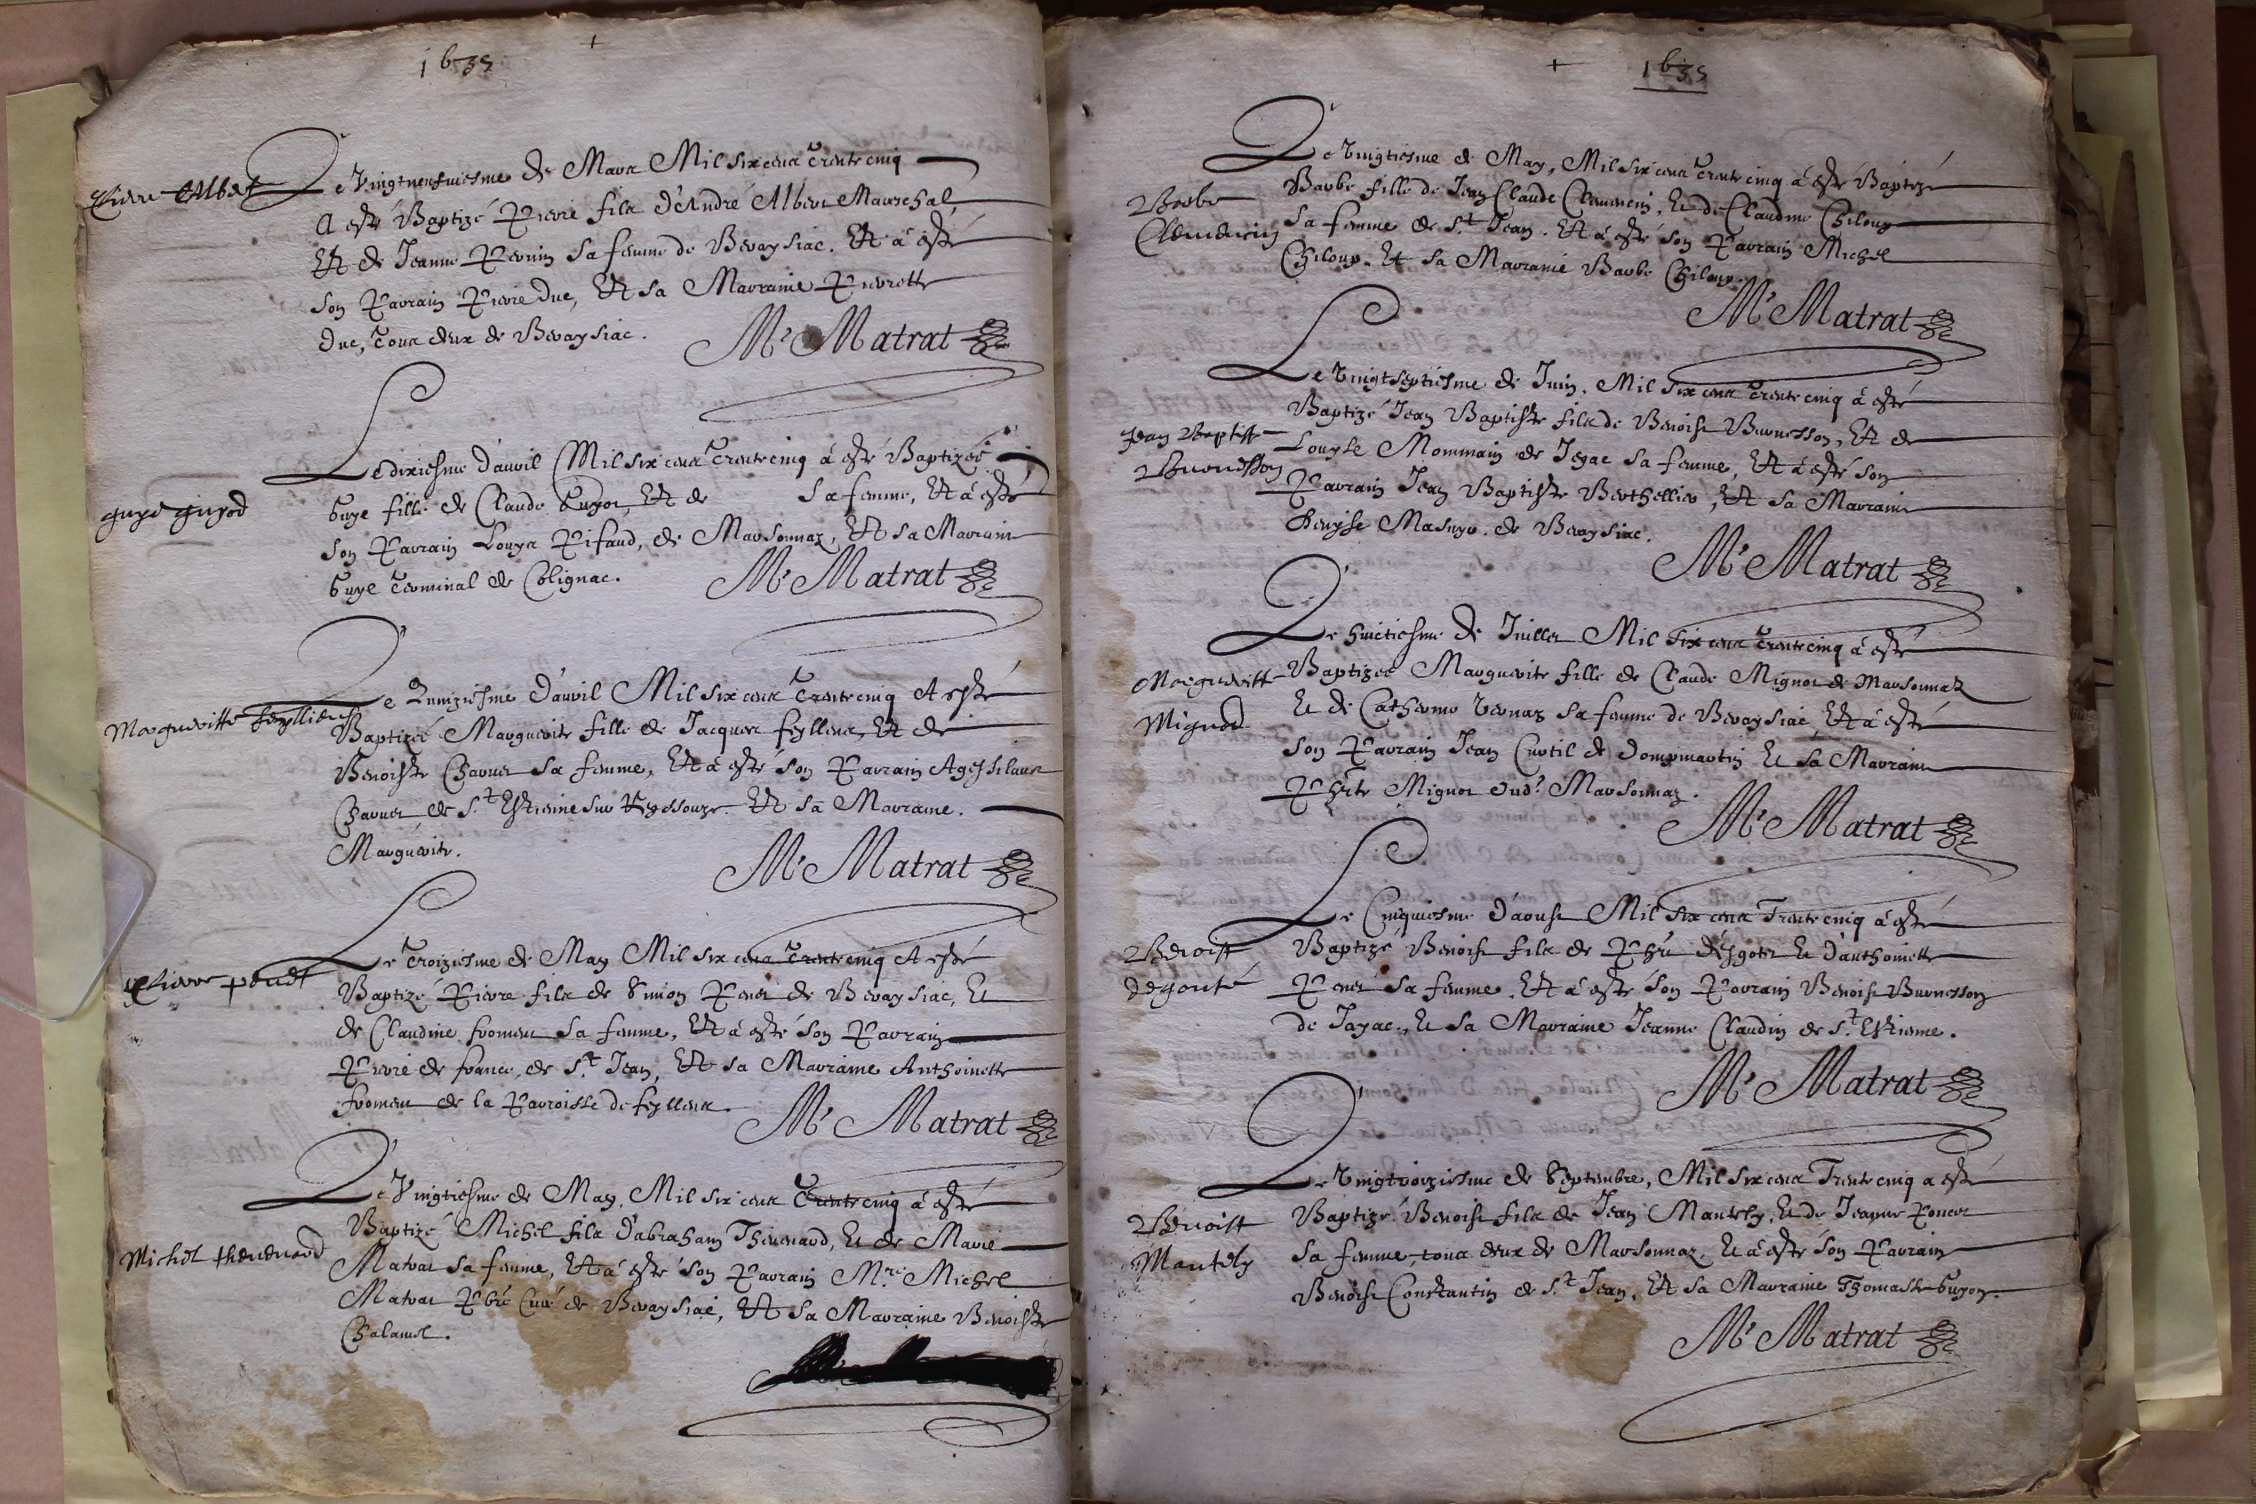 1635
Pierre Albert
Le Vingtneufuiesme de Mars Mil six cens Trente cinq
A esté Baptizé Pierre fils d'André Albert Mareschal,
Et de Jeanne Pernin sa femme de Bevaysiac. Et à esté
son Parrain Pierre Duc, Et sa Marraine Pierrette
Duc, Tous deux de Bevaysiac.
Mr Matrat
guye guyod
Le dixiesme d'avril Mil six cens Trente cinq à esté Baptizée
Guye fille de Claude Guyot, Et de sa femme, Et à esté
son Parrain Louys Pifaud, de Marsonnaz, Et sa Marraine
Guye Terminal de Colignac.
Mr Matrat
Margueritte feyllens
Le Quinziesme d'avril Mil six cens Trente cinq A esté
Baptizée Marguerite fille de Jacques feyllens, Et de
Benoiste Charvet sa femme, Et à esté son Parrain
Charvet, de St Estienne sur Reyssouze. Et sa Marraine.
Marguerite.
Mr Matrat
Pierre penet
Le Troiziesme de May Mil six cens Trente cinq A esté
Baptizé Pierre fils de Simon Penet de Bevaysiac, Et
de Claudine froment sa femme, Et à esté son Parrain
Pierre de france, de St Jean, Et sa Marraine Anthoinette
froment de la Parroisse de feyllens.
Mr Matrat
Michel thevenard
Le Vingtiesme de May, Mil six cens Trente cinq à esté
Baptizé Michel fils d'abraham Thevenard, Et de Marie
Matrat sa femme, Et à esté son Parrain Mre Michel
Matrat Pbre Curé de Bevaysiac, Et sa Marraine Benoiste
Chalamel.
1635
Barbe
Clemencin
Le Vingtiesme de May, Mil six cens Trente cinq à esté Baptizé
Barbe fille de Jean Claude Clemencin, Et de Claudine Chiloup
sa femme de St Jean. Et à esté son Parrain Michel
Chiloup. Et sa Marraine Barbe Chiloup.
Mr Matrat
Jean Baptiste
Burnesson
Le Vingtseptiesme de Juin, Mil six cens Trente cinq à esté
Baptizé Jean Baptiste fils de Benoist Burnesson, Et de
Louyse Mommain de Jayac sa femme, Et à esté son
Parrain Jean Baptiste Berthellier, Et sa Marraine
Denyse Masuyr de Bevaysiac.
Mr Matrat
Margueritte
Mignod
Le huictiesme de Juillet Mil six cens Trente cinq à esté
Baptizée Marguerite fille de Claude Mignot de Marsonnaz
Et de Catherine Vernaz sa femme de Bevaysiac, Et à esté
son Parrain Jean Curtil de Dompmartin Et sa Marraine
Phte Mignot dud. Marsonnaz.
Mr Matrat
Benoist
degouté
Le Cinquiesme d'aoust Mil six cens Trente cinq à esté
Baptizé Benoist fils de Phil desgotes Et d'anthoinette
Penet sa femme. Et à esté son Parrain Benoist Burnesson
de Jayac, Et sa Marraine Jeanne Claudin de St Estienne.
Mr Matrat
Benoist
Mantely
Le Vingtroiziesme de Septembre, Mil six cens Trente cinq a esté
Baptizé Benoist fils de Jean Mantely, Et de Jeanne Poncet
sa femme, tous deux de Marsonnaz, Et à esté son Parrain
Benoist Constantin de St Jean, Et sa Marraine Thomasse Guyon.
Mr Matrat